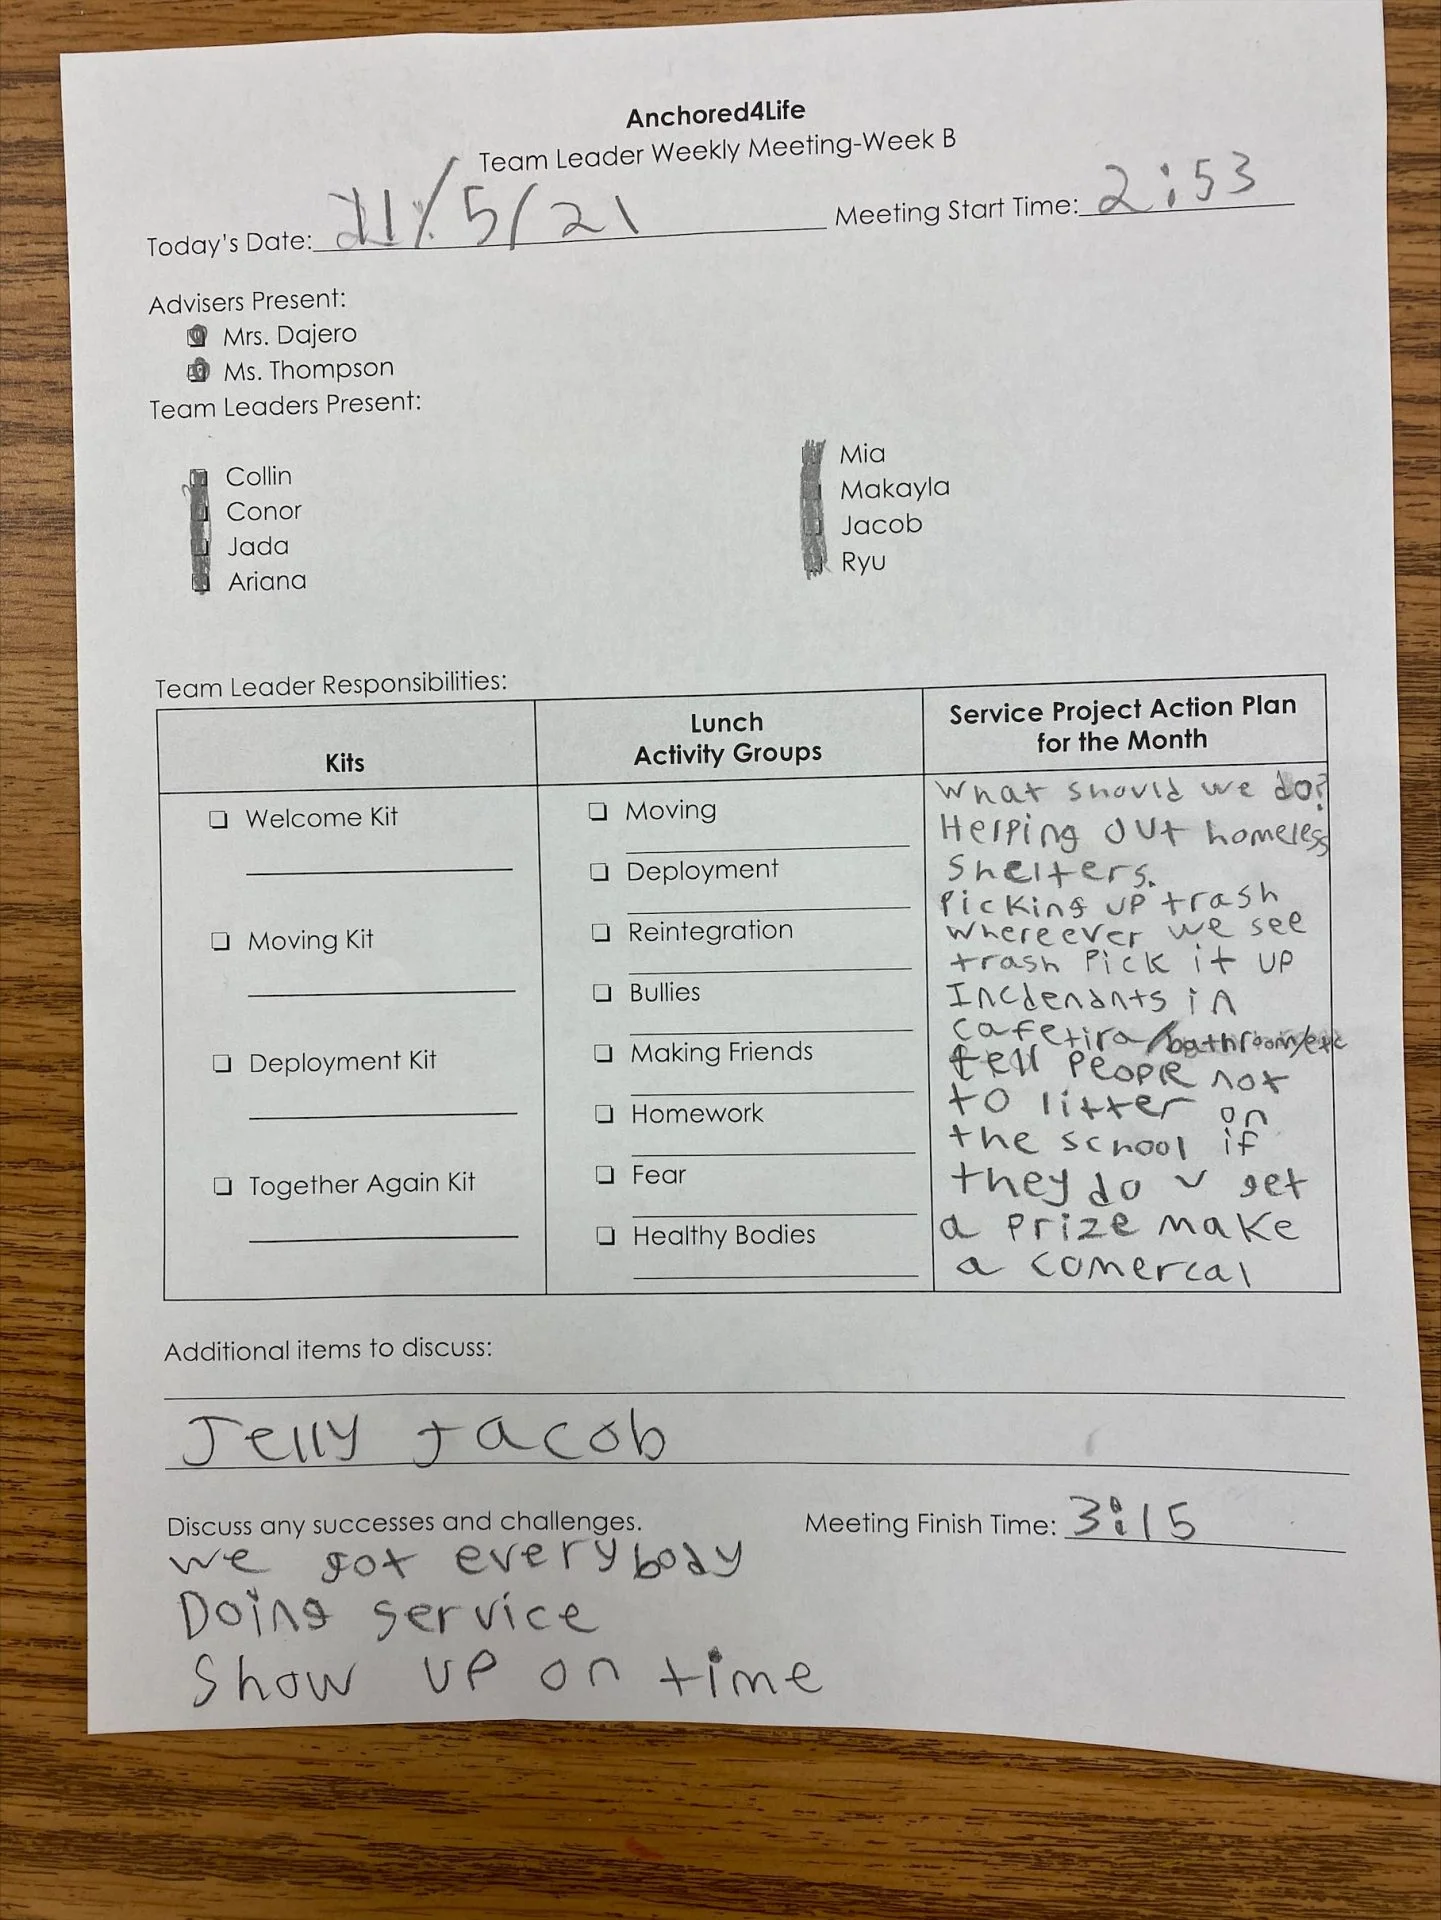 Anchored4Life
Team Leader Weekly Meeting-Week B
Today's Date: 11/5/21 Meeting Start Time: 2:53
Advisers Present:
Mrs. Dajero
Ms. Thompson
Team Leaders Present:
Collin
Conor
Jada
Ariana
Mia
Makayla
Jacob
Ryu
Team Leader Responsibilities:
Kits
Welcome Kit
Moving Kit
Deployment Kit
Together Again Kit
Lunch
Activity Groups
Moving
Deployment
Reintegration
Bullies
Making Friends
Homework
Fear
Healthy Bodies
Service Project Action Plan
for the Month
What should we do?
Helping out homeless
Shelters.
Picking up trash
whereever we see
trash Pick it up
Incdenants in
cafetira/bathroom/etc
tell people not
to litter on
the school if
they do u get
a prize make
a comercal
Additional items to discuss:
Jelly Jacob
Discuss any successes and challenges.
Meeting Finish Time: 3:15
we got everybody
Doing service
Show up on time